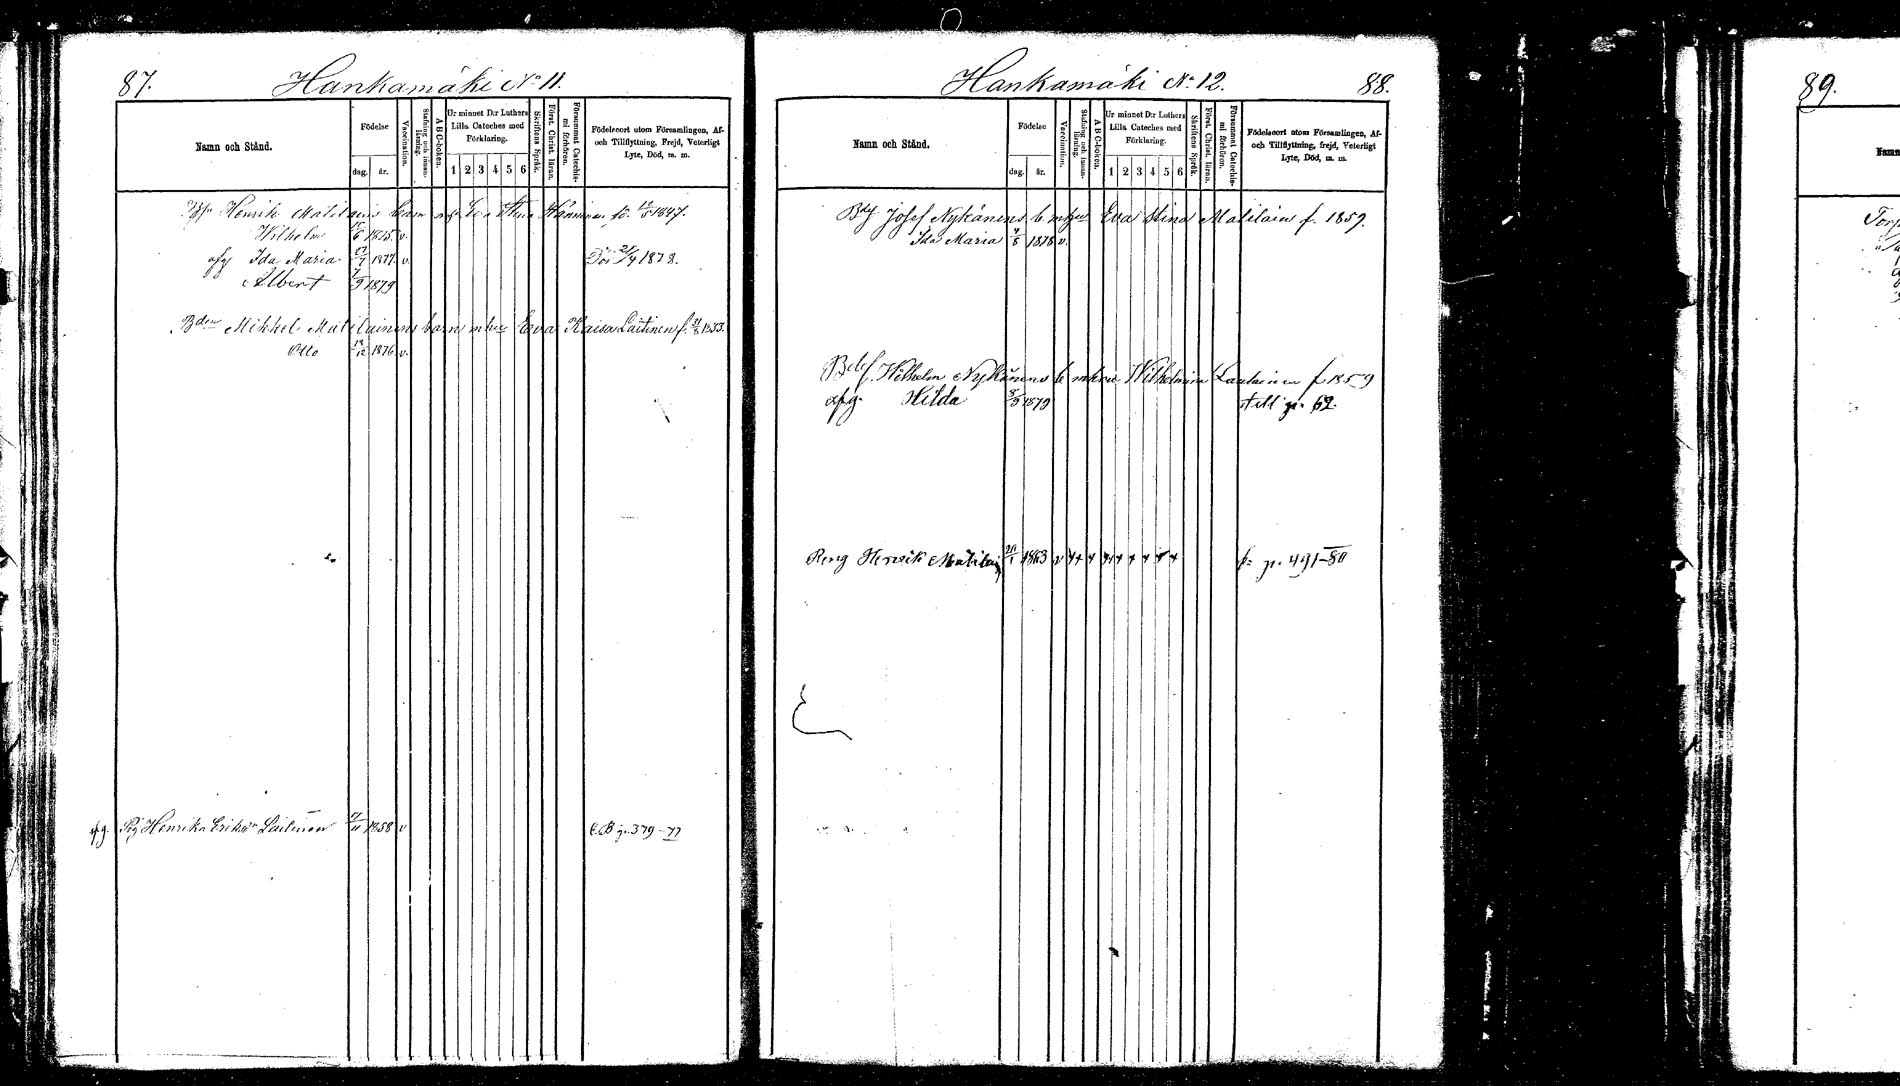 87. Hankamäki No 11.
Namn och Stånd.
Födelse
dag.
år.
Vaccination.
Stafning och innan-läsning.
A B C-boken.
Ur minnet D:r Luthers Lilla Cateches med Förklaring.
1 2 3 4 5 6
Skriftens Språk.
Först. Christ. läran.
Försummat Catechis-mi förhören.
Födelseort utom Församlingen, Af-
och Tillflyttning, Frejd, Veterligt
Lyte, Död, m. m.
Henrik Matilains barn Stina 1847.
Wilhelm 1875. v.
afg Ida Maria 1877. v. Död 21/4 1878.
Albert 7/9 1879
Bden Mikkel Matilainens barn mhu Eva Kaisa Laitinen f. 1833.
Otto 1876. v.
afg. Pig Henrika Eriksn Laitinen 1858 v p. 379-77
Hankamäki No 12. 88.
Namn och Stånd.
Födelse
dag.
år.
Vaccination.
Stafning och innan-läsning.
A B C-boken.
Ur minnet D:r Luthers Lilla Cateches med Förklaring.
1 2 3 4 5 6
Skriftens Språk.
Först. Christ. läran.
Försummat Catechis-mi förhören.
Födelseort utom Församlingen, Af-
och Tillflyttning, frejd, Veterligt
Lyte, Död, m. m.
Bdf Josef Nykänens b mhu Eva Stina Matilain f. 1859.
Ida Maria 4/8 1878 v.
Bdf. Wilhelm Nykänens b mhu Wilhelmina f 1859
afg. Hilda 1879 till p. 62.
Reng Henrik Matilain 1863 v p. 491-80
89.